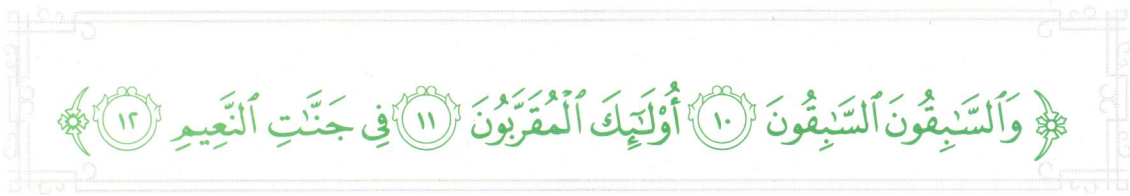 ﴿ وَٱلسَّٰبِقُونَ ٱلسَّٰبِقُونَ ١٠ أُوْلَٰٓئِكَ ٱلْمُقَرَّبُونَ ١١ فِى جَنَّٰتِ ٱلنَّعِيمِ ١٢ ﴾